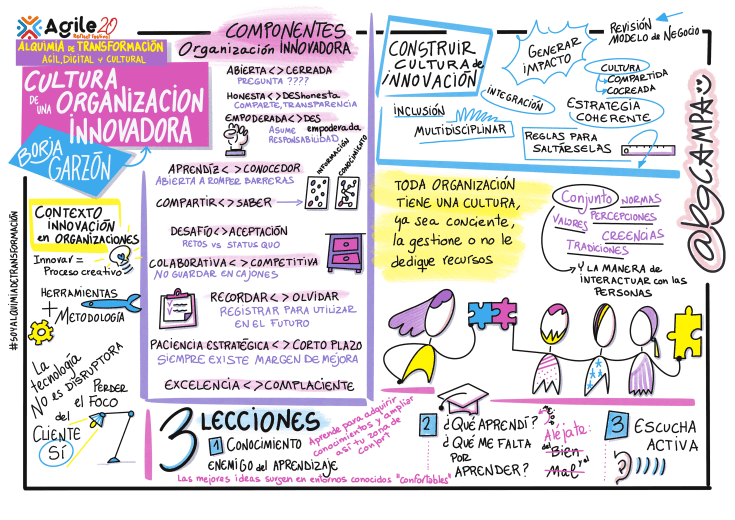 Agile20
Reflect Festival
ALQUIMIA DE TRANSFORMACIÓN
AGIL, DIGITAL Y CULTURAL
CULTURA
DE UNA ORGANIZACION
INNOVADORA
BORJA
GARZÓN
#SOYALQUIMIADETRANSFORMACIÓN
CONTEXTO
INNOVACIÓN
en ORGANIZACIONES
Innovar =
Proceso creativo
HERRAMIENTAS
+ METODOLOGÍA
La
tecnología
NO es DISRUPTORA
PERDER
el FOCO
del
CLIENTE
SÍ
COMPONENTES
Organización INNOVADORA
ABIERTA < > CERRADA
PREGUNTA ????
HONESTA < > DEShonesta
COMPARTE, TRANSPARENCIA
EMPODERADA < > DES
empoderada
ASUME
RESPONSABILIDAD
INFORMACIÓN
CONOCIMIENTO
APRENDÍZ < > CONOCEDOR
ABIERTA A ROMPER BARRERAS
COMPARTIR < > SABER
DESAFÍO < > ACEPTACIÓN
RETOS VS STATUS QUO
COLABORATIVA < > COMPETITIVA
NO GUARDAR EN CAJONES
RECORDAR < > OLVIDAR
REGISTRAR PARA UTILIZAR
EN EL FUTURO
PACIENCIA ESTRATÉGICA < > CORTO PLAZO
SIEMPRE EXISTE MARGEN DE MEJORA
EXCELENCIA < > COMPLACIENTE
CONSTRUIR
CULTURA de
INNOVACIÓN
GENERAR
IMPACTO
REVISIÓN
MODELO de NEGOCIO
CULTURA
COMPARTIDA
COCREADA
INTEGRACIÓN
ESTRATEGIA
COHERENTE
INCLUSIÓN
MULTIDISCIPLINAR
REGLAS PARA
SALTÁRSELAS
@bgCAMPA
TODA ORGANIZACIÓN
TIENE UNA CULTURA,
ya sea conciente,
la gestione o no le
dedique recursos
Conjunto NORMAS
VALORES PERCEPCIONES
CREENCIAS
TRADICIONES
Y LA MANERA de
INTERACTUAR con las
PERSONAS
3 LECCIONES
1 CONOCIMIENTO
ENEMIGO del APRENDIZAJE
Aprende para adquirir
conocimientos y ampliar
así tu zona de
confort
Las mejores ideas surgen en entornos conocidos "confortables"
2 ¿QUÉ APRENDÍ?
¿QUÉ ME FALTA
POR
APRENDER?
MEJOR
Aléjate
del Bien
y el
Mal
3 ESCUCHA
ACTIVA